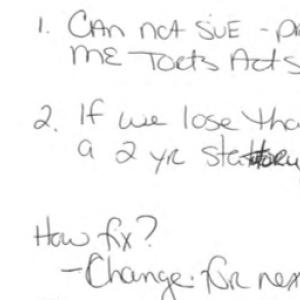 1. CAN not SUE - pr
ME Torts Acts
2. If we lose tha
a 2 yr
How fix?
- Change. for nex